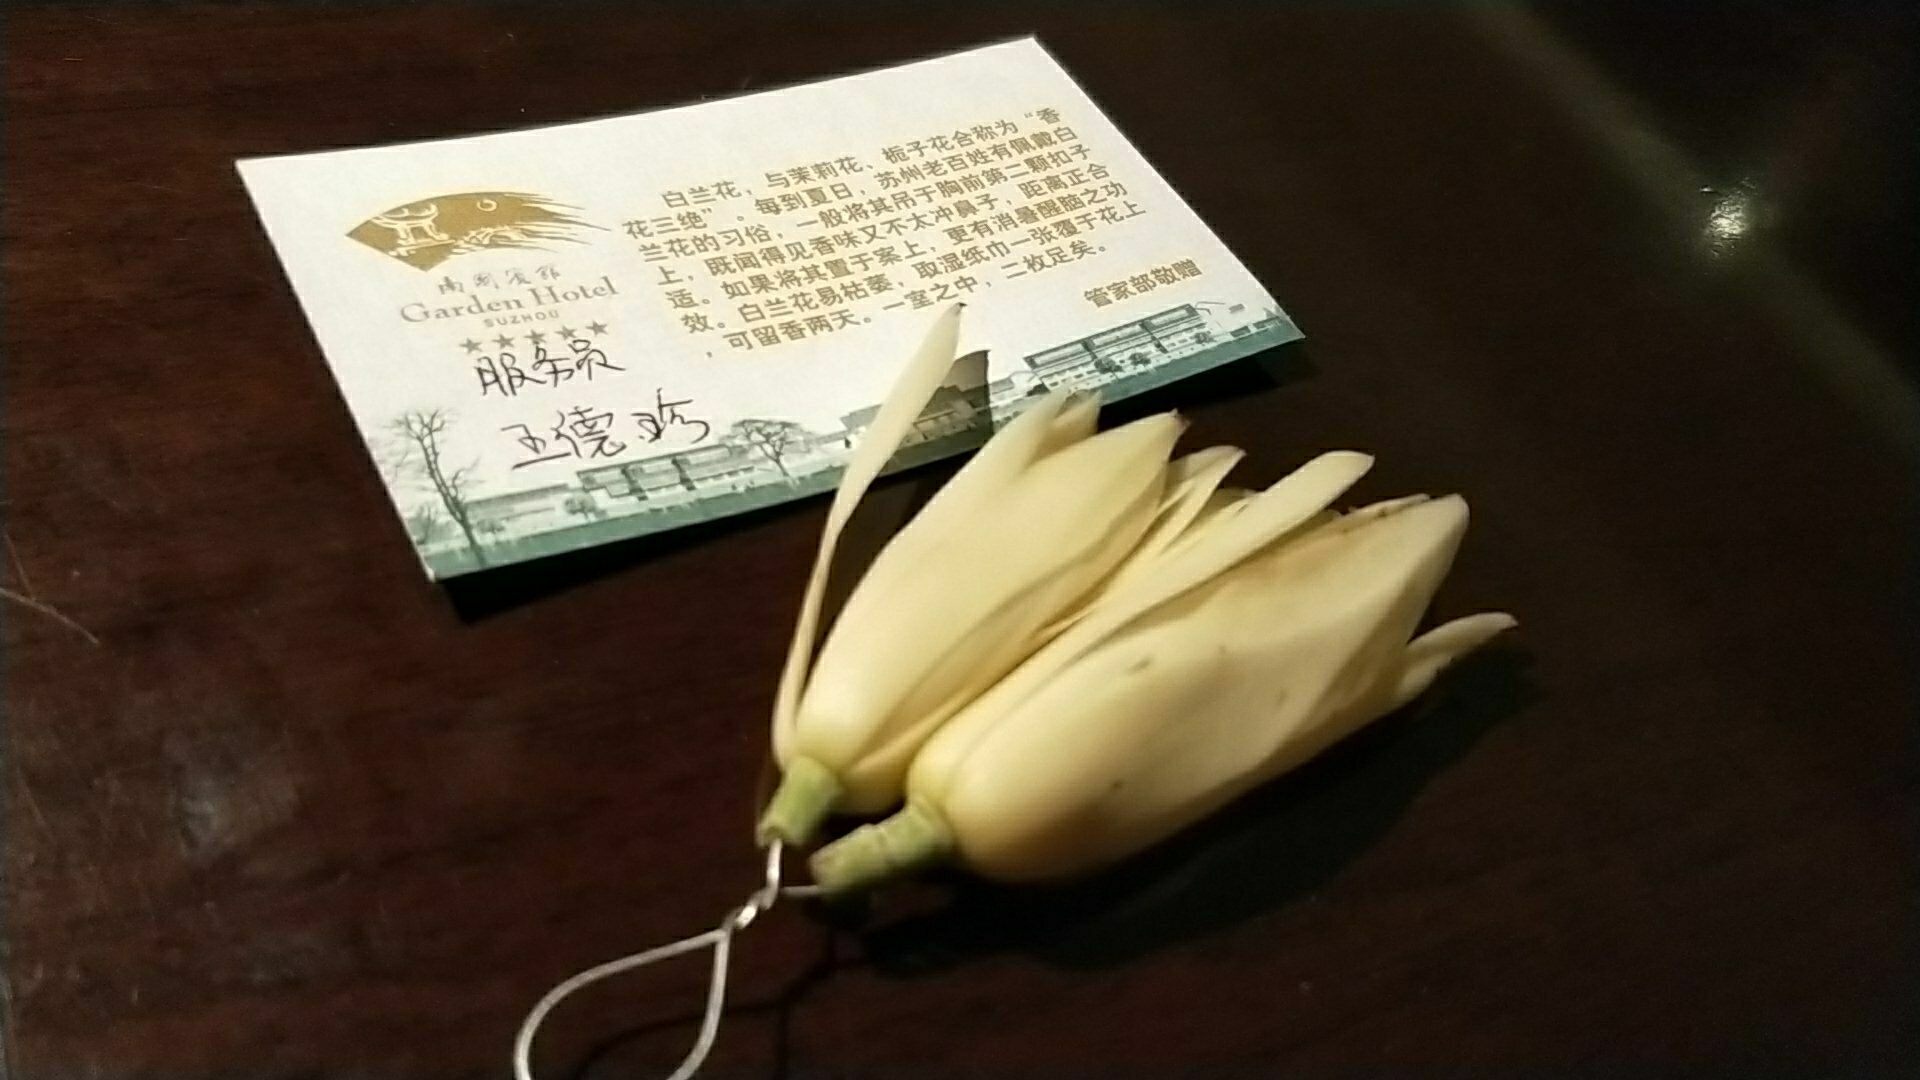 南园宾馆
Garden Hotel
SUZHOU
服务员
王德珍
白兰花，与茉莉花、栀子花合称为“香
花三绝”。每到夏日，苏州老百姓有佩戴白
兰花的习俗，一般将其吊于胸前第二颗扣子
上，既闻得见香味又不太冲鼻子，距离正合
适。如果将其置于案上，更有消暑醒脑之功
效。白兰花易枯萎，取湿纸巾一张覆于花上
，可留香两天。一室之中，二枚足矣。
管家部敬赠